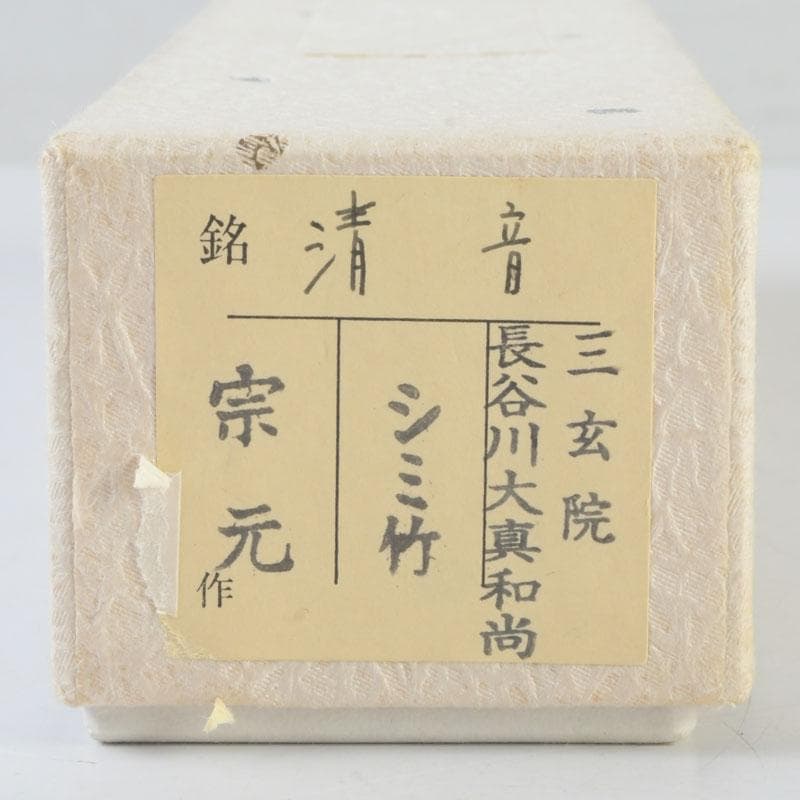 銘 清音
三玄院
長谷川大真和尚
シミ竹
宗元
作